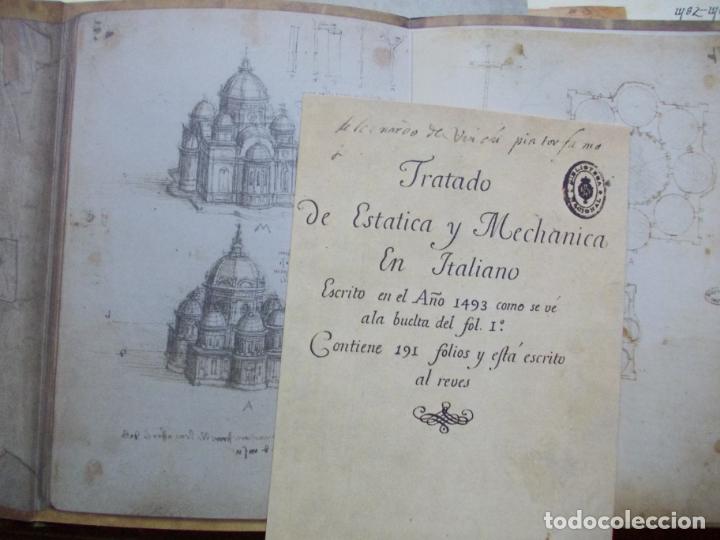 de Leonardo de Vinci pintor famo
Tratado
de Estatica y Mechanica
En Italiano
Escrito en el Año 1493 como se vé
ala buelta del fol. 1º.
Contiene 191 folios y está escrito
al reves
BIBLIOTECA NACIONAL
M
A
todocoleccion
todocoleccion.net